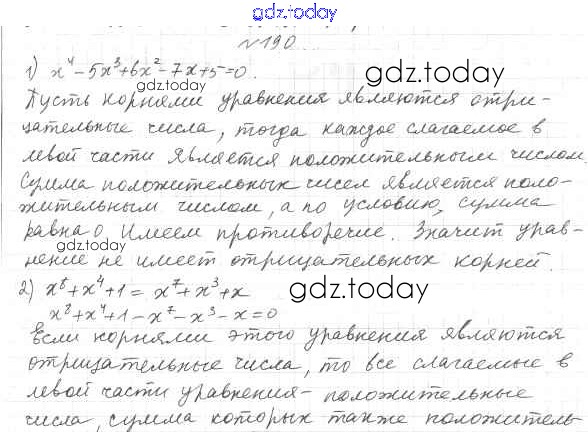 gdz.today
№190.
1) x⁴ - 5x³ + 6x² - 7x + 5 = 0.
gdz.today
Пусть корнями уравнения являются отри-
цательные числа, тогда каждое слагаемое в
левой части является положительным числом,
Сумма положительных чисел является поло-
жительным числом, а по условию, сумма
равна 0. Имеем противоречие. Значит урав-
gdz.today
нение не имеет отрицательных корней.
2) x⁸ + x⁴ + 1 = x⁷ + x³ + x
gdz.today
x⁸ + x⁴ + 1 - x⁷ - x³ - x = 0
Если корнями этого уравнения являются
отрицательные числа, то все слагаемые в
левой части уравнения - положительные
числа, сумма которых также положитель-